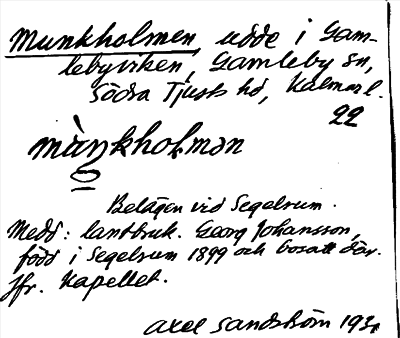 Munkholmen, udde i Gam-
lebyviken, Gamleby sn,
Södra Tjusts hd, Kalmar l.
22
mùŋkholmən
Belägen vid Segelrum.
Medd: lantbruk. Georg Johansson,
född i Segelrum 1899 och bosatt där.
Jfr. Kapellet.
Axel Sandström